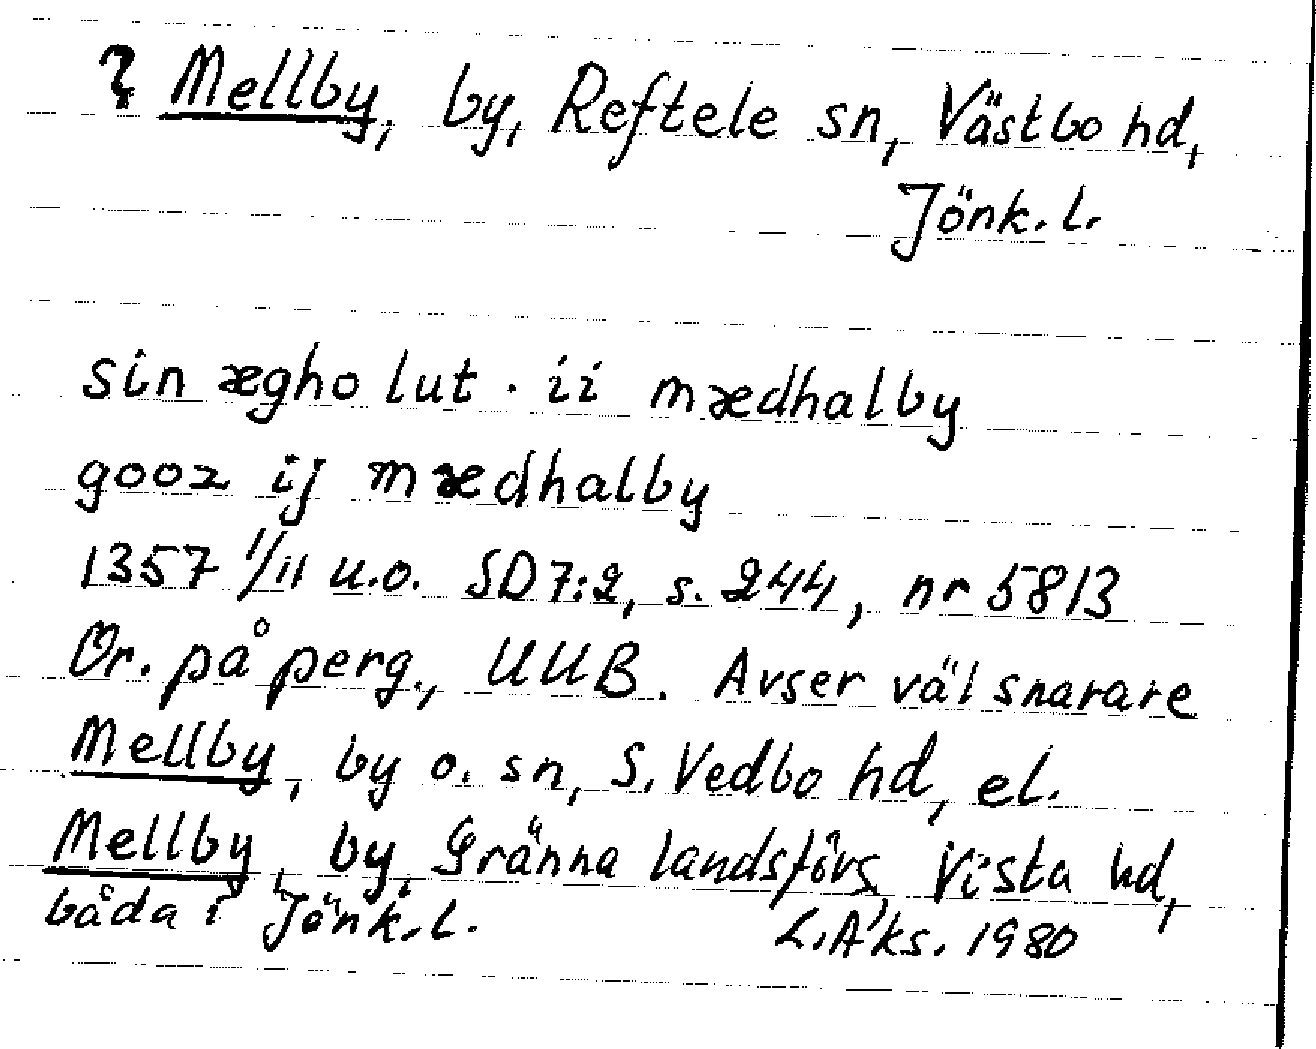 ? Mellby, by, Reftele sn, Västbo hd,
Jönk. l.
sin ægho lut · ii mædhalby
gooz ij mædhalby
1357 1/11 u.o. SD 7:2, s. 244, nr 5813
Or. på perg., UUB. Avser väl snarare
Mellby, by o. sn, S. Vedbo hd, el.
Mellby, by, Gränna landsförs, Vista hd,
båda i Jönk. l.
L. Åks. 1980